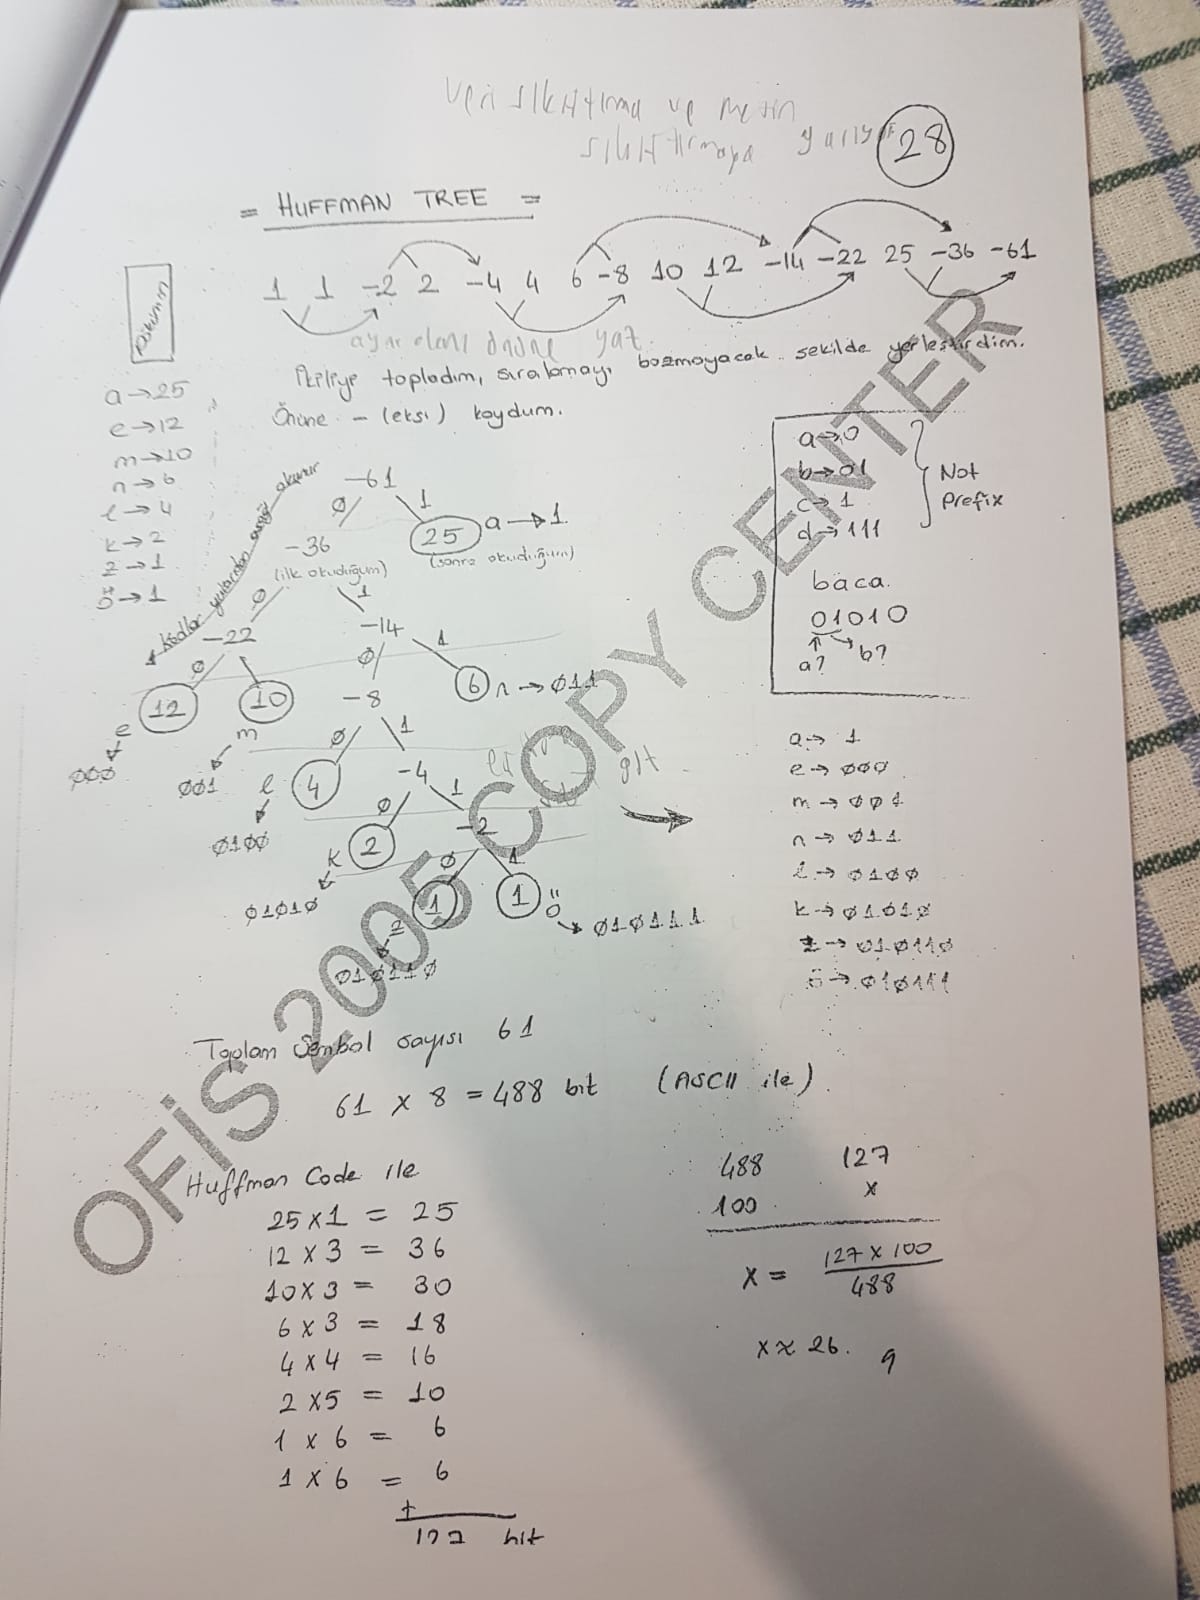 veri sıkıştırma ve metin
sıkıştırmaya yarıyor
28
= HUFFMAN TREE =
1 1 -2 2 -4 4 6 -8 10 12 -14 -22 25 -36 -61
Döküman
yaz.
İkiliye topladım, sıralamayı bozmayacak şekilde yerleştirdim.
Önüne - (eksi) koydum.
a→25
e→12
m→10
n→6
l→4
k→2
z→1
ö→1
Kodlar yukarıdan aşağı okunur
-61
0 1
-36 25 a→1
(ilk okuduğum) (sonra okuduğum)
0 1
-22 -14
0 0 1
12 10 -8 6 n→011
e m 0 1
000 001 l 4 -4
0100 0 1
k 2 -2
01010 0 1
1 1 ö
z 010111
010110
a→0
b→01
c→1
d→111
Not
Prefix
baca.
01010
a? b?
a→1
e→000
m→001
n→011
l→0100
k→01010
z→010110
ö→010111
Toplam Sembol sayısı 61
61 x 8 = 488 bit (ASCII ile)
Huffman Code ile
25 x 1 = 25
12 x 3 = 36
10 x 3 = 30
6 x 3 = 18
4 x 4 = 16
2 x 5 = 10
1 x 6 = 6
1 x 6 = 6
+
127 bit
488 127
100 x
x = 127 x 100
488
x ≈ 26.
9
OFİS 2005 COPY CENTER